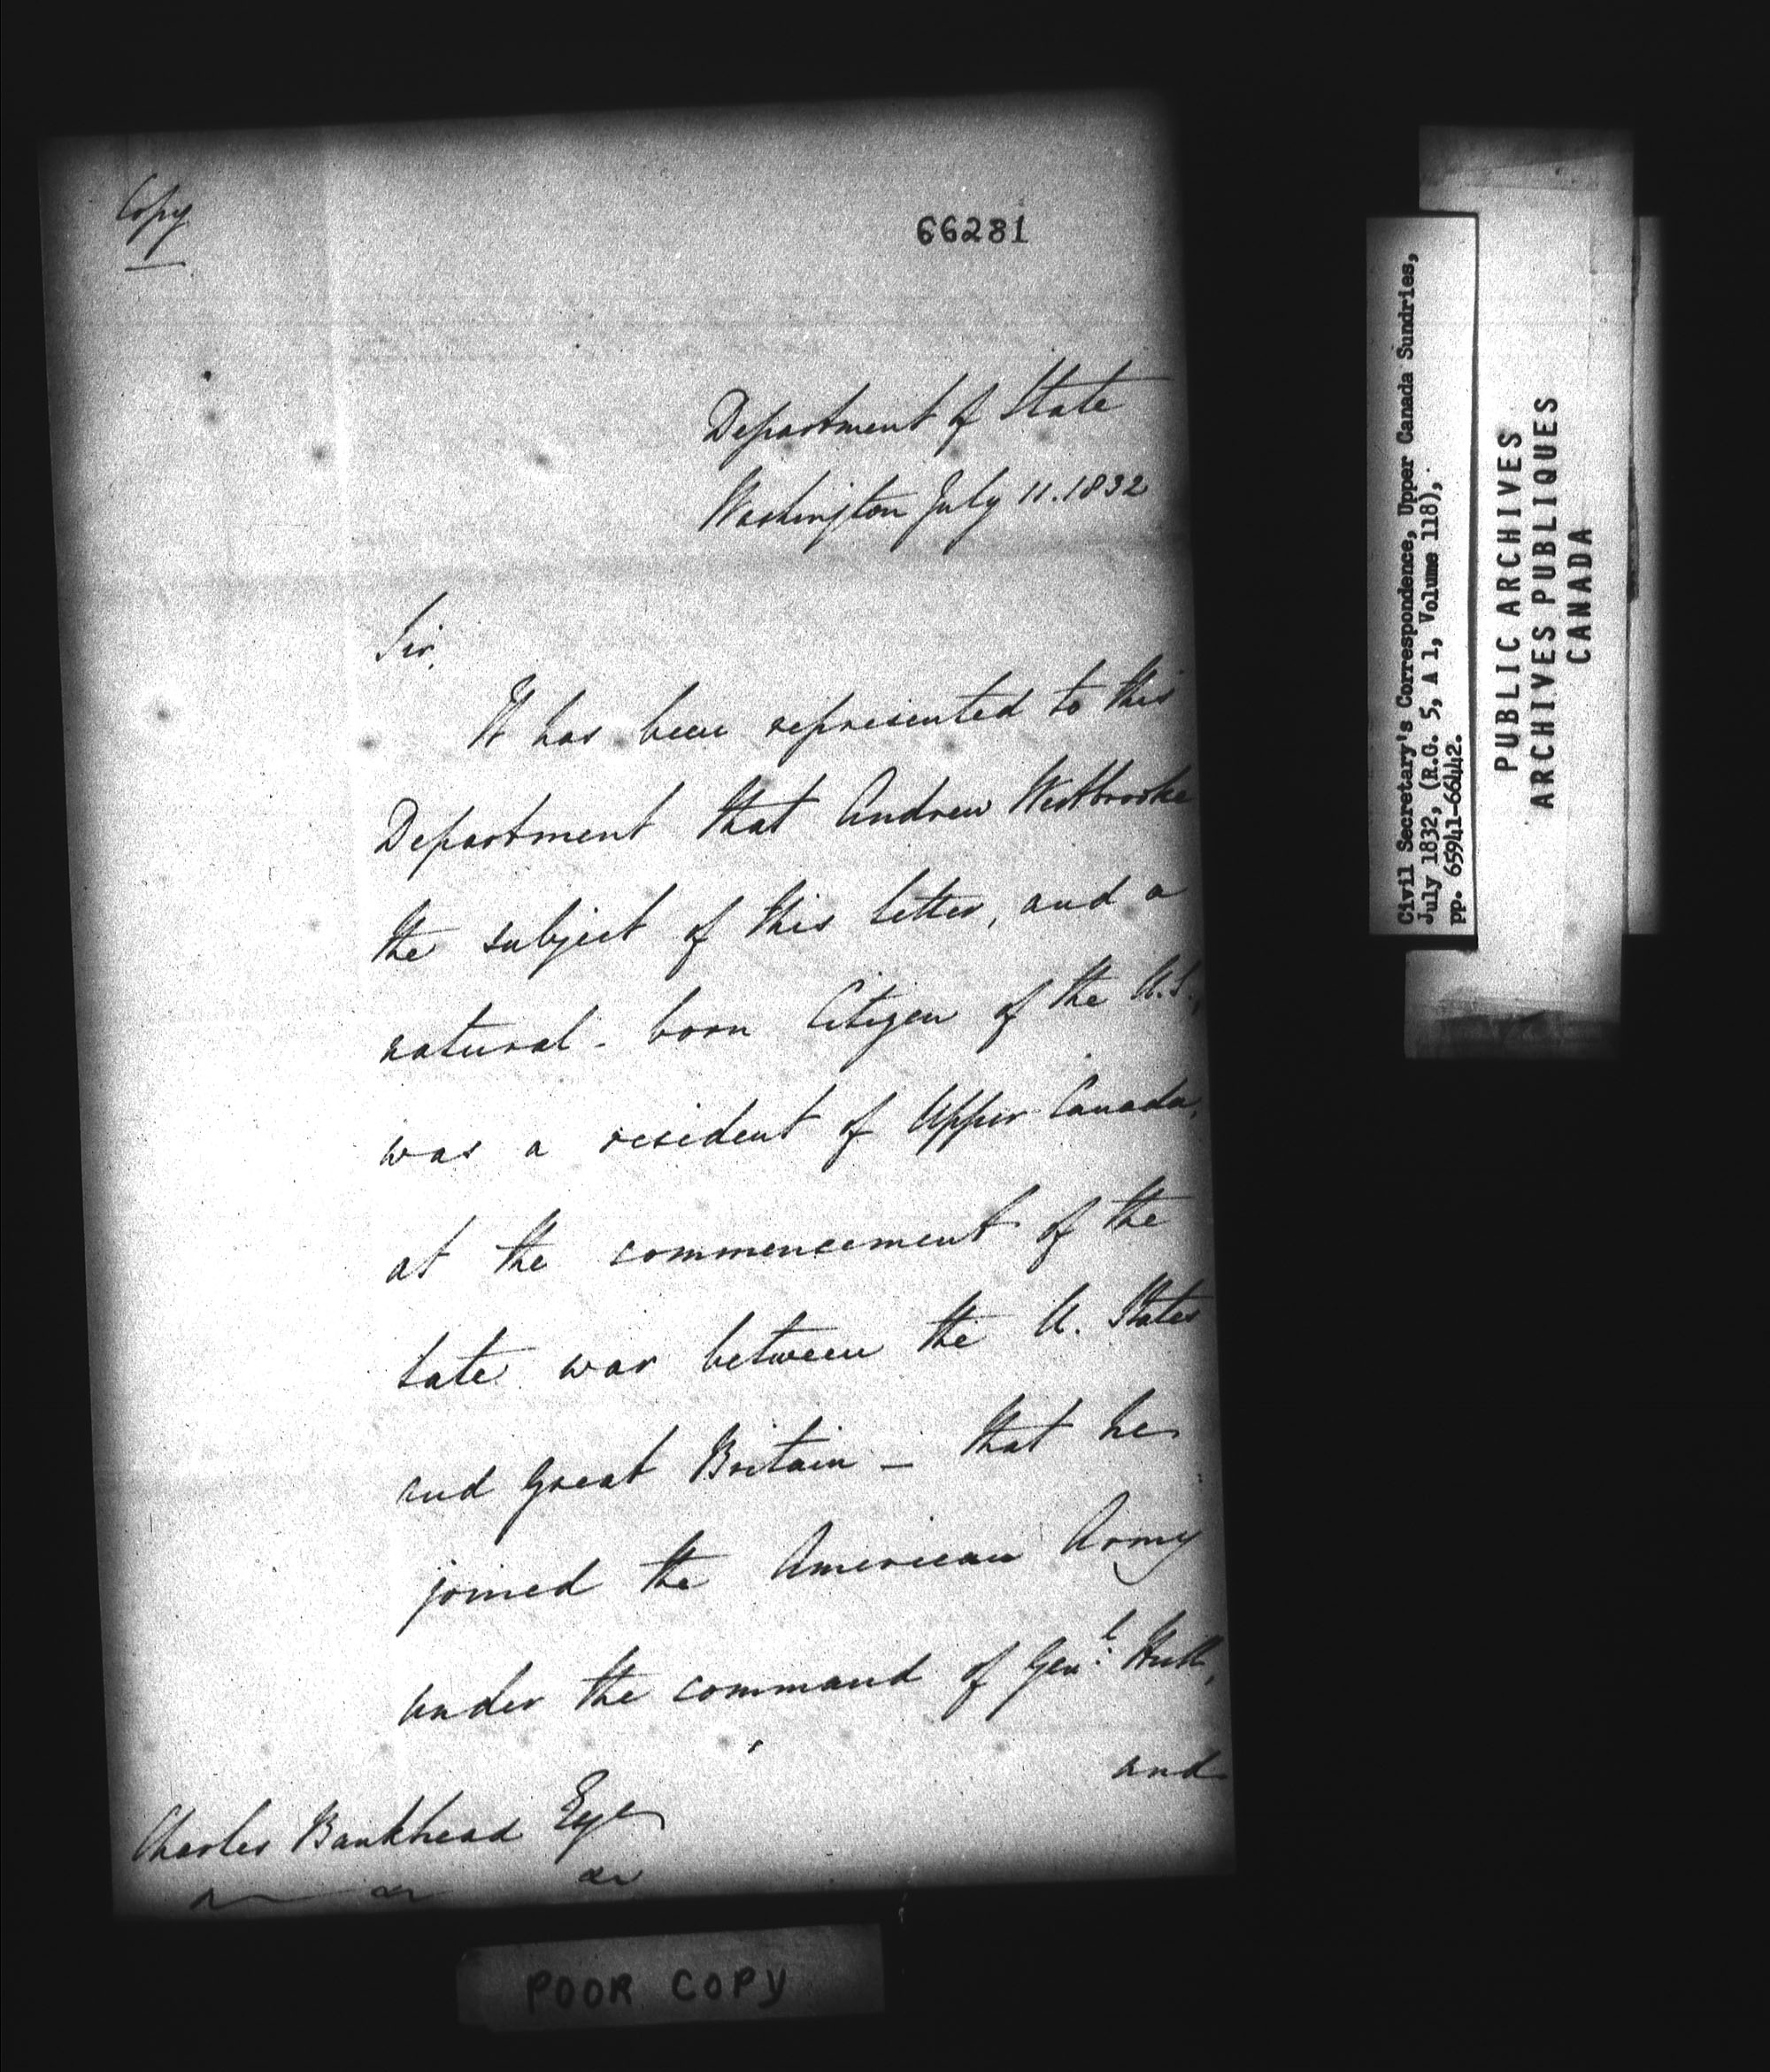 Copy
66281
Department of State
Washington July 11. 1832
Sir,
It has been represented to this
Department that Andrew Westbrooke
the subject of this letter, and a
natural-born Citizen of the U.S.,
was a resident of Upper Canada,
at the commencement of the
late war between the U. States
and Great Britain - that he
joined the American Army
under the command of Genl. Hull,
and
Charles Bankhead Esqe
&c &c &c
POOR COPY
Civil Secretary's Correspondence, Upper Canada Sundries,
July 1832, (R.G. 5, A 1, Volume 118),
pp. 65941-66442.
PUBLIC ARCHIVES
ARCHIVES PUBLIQUES
CANADA